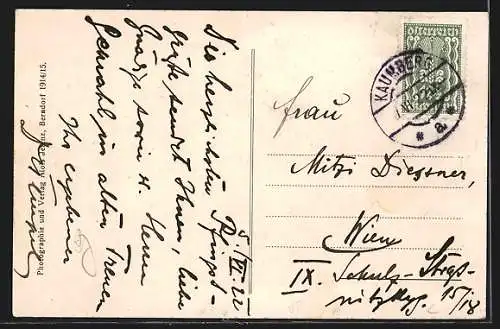 5./VI. 22
Die herzlichsten Pfingst-
grüße sendet Ihnen, liebe
sowie H. Herrn
Gemahl in alter Treue
Ihr ergebener
Photographie und Verlag Alois Berndorf 1914/15.
österreich
KAUMBERG
* a *
Frau
Mitzi Diessner,
Wien
IX. Schulz-Straß-
nitzkyg. 15/18